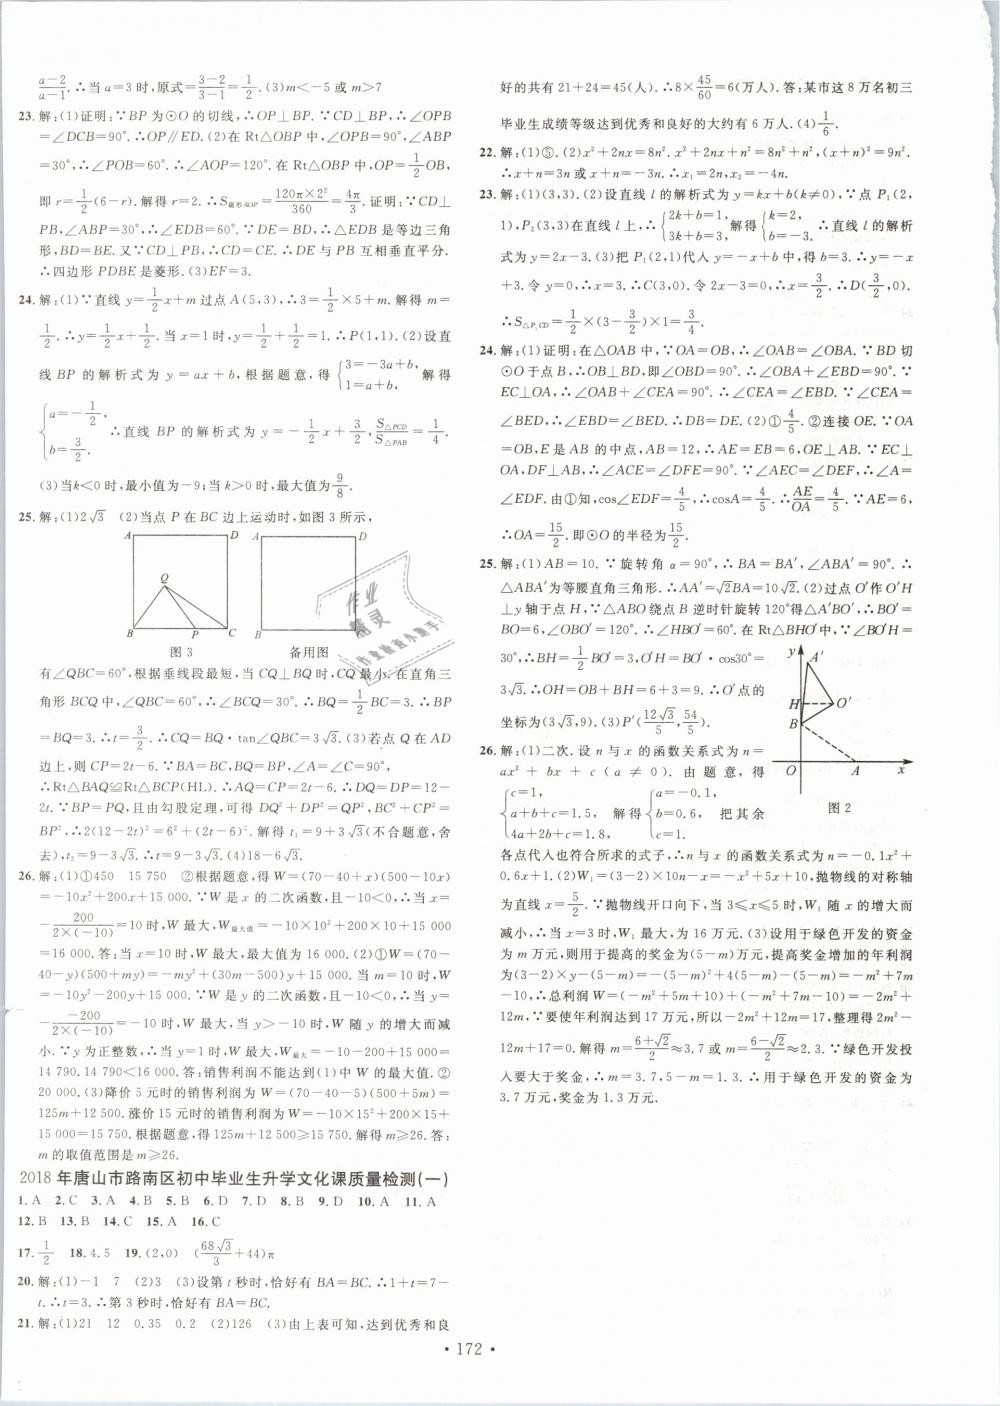 a−2/a−1.∴当 a=3 时,原式=3−2/3−1=1/2.(3)m<−5 或 m>7
23. 解:(1)证明:∵BP 为⊙O 的切线,∴OP⊥BP.∵CD⊥BP,∴∠OPB
=∠DCB=90°.∴OP∥ED.(2)在 Rt△OBP 中,∠OPB=90°,∠ABP
=30°,∴∠POB=60°.∴∠AOP=120°.在 Rt△OBP 中,OP=1/2OB,
即 r=1/2(6−r).解得 r=2.∴S扇形AOP=120π×2²/360=4π/3.证明:∵CD⊥
PB,∠ABP=30°,∴∠EDB=60°.∵DE=BD,∴△EDB 是等边三角
形,BD=BE.又∵CD⊥PB,∴CD=CE.∴DE 与 PB 互相垂直平分.
∴四边形 PDBE 是菱形.(3)EF=3.
24. 解:(1)∵直线 y=1/2x+m 过点 A(5,3),∴3=1/2×5+m.解得 m=
1/2.∴y=1/2x+1/2.当 x=1 时,y=1/2+1/2=1.∴P(1,1).(2)设直
线 BP 的解析式为 y=ax+b,根据题意,得{3=−3a+b, 1=a+b, 解得
{a=−1/2, b=3/2. ∴直线 BP 的解析式为 y=−1/2x+3/2,S△PCD/S△PAB=1/4.
(3)当 k<0 时,最小值为−9;当 k>0 时,最大值为9/8.
25. 解:(1)2√3 (2)当点 P 在 BC 边上运动时,如图 3 所示,
A D A D
Q
B P C B
图 3 备用图
有∠QBC=60°,根据垂线段最短,当 CQ⊥BQ 时,CQ 最小.在直角三
角形 BCQ 中,∠QBC=60°,∴∠BCQ=30°.∴BQ=1/2BC=3.∴BP
=BQ=3.∴t=3/2.∴CQ=BQ·tan∠QBC=3√3.(3)若点 Q 在 AD
边上,则 CP=2t−6.∵BA=BC,BQ=BP,∠A=∠C=90°.
∴Rt△BAQ≌Rt△BCP(HL).∴AQ=CP=2t−6.∴DQ=DP=12−
2t.∵BP=PQ,且由勾股定理,可得 DQ²+DP²=QP²,BC²+CP²=
BP²,∴2(12−2t)²=6²+(2t−6)².解得 t₁=9+3√3(不合题意,舍
去),t₂=9−3√3.∴t=9−3√3.(4)18−6√3.
26. 解:(1)①450 15 750 ②根据题意,得 W=(70−40+x)(500−10x)
=−10x²+200x+15 000.∵W 是 x 的二次函数,且−10<0,∴当 x=
−200/2×(−10)=10 时,W 最大,W最大值=−10×10²+200×10+15 000
=16 000.答:当 x=10 时,W 最大,最大值为 16 000.(2)①W=(70−
40−y)(500+my)=−my²+(30m−500)y+15 000.当 m=10 时,W
=−10y²−200y+15 000.∵W 是 y 的二次函数,且−10<0,∴当 y=
−−200/2×(−10)=−10 时,W 最大,当 y>−10 时,W 随 y 的增大而减
小.∵y 为正整数,∴当 y=1 时,W 最大,W最大=−10−200+15 000=
14 790.14 790<16 000.答:销售利润不能达到(1)中 W 的最大值.②
20 000.(3)降价 5 元时的销售利润为 W=(70−40−5)(500+5m)=
125m+12 500.涨价 15 元时的销售利润为 W=−10×15²+200×15+
15 000=15 750.根据题意,得 125m+12 500≥15 750.解得 m≥26.答:
m 的取值范围是 m≥26.
2018 年唐山市路南区初中毕业生升学文化课质量检测(一)
1. A 2. C 3. A 4. C 5. B 6. D 7. D 8. B 9. D 10. A 11. A
12. B 13. B 14. C 15. A 16. C
17. 1/2 18. 4.5 19. (2,0) (68√3/3+44)π
20. 解:(1)−1 7 (2)3 (3)设第 t 秒时,恰好有 BA=BC.∴1+t=7−
t.∴t=3.∴第 3 秒时,恰好有 BA=BC.
21. 解:(1)21 12 0.35 0.2 (2)126 (3)由上表可知,达到优秀和良
好的共有 21+24=45(人).∴8×45/60=6(万人).答:某市这 8 万名初三
毕业生成绩等级达到优秀和良好的大约有 6 万人.(4)1/6.
22. 解:(1)⑤.(2)x²+2nx=8n².x²+2nx+n²=8n²+n²,(x+n)²=9n².
∴x+n=3n 或 x+n=−3n.∴x₁=2n,x₂=−4n.
23. 解:(1)(3,3).(2)设直线 l 的解析式为 y=kx+b(k≠0),∵点 P₁(2,
1),P₂(3,3)在直线 l 上,∴{2k+b=1, 3k+b=3, 解得{k=2, b=−3. ∴直线 l 的解析
式为 y=2x−3.(3)把 P₁(2,1)代入 y=−x+b 中,得 b=3.∴y=−x
+3.令 y=0,∴x=3.∴C(3,0).令 2x−3=0,∴x=3/2.∴D(3/2,0).
∴S△P₁CD=1/2×(3−3/2)×1=3/4.
24. 解:(1)证明:在△OAB 中,∵OA=OB,∴∠OAB=∠OBA.∵BD 切
⊙O 于点 B,∴OB⊥BD,即∠OBD=90°.∴∠OBA+∠EBD=90°.∵
EC⊥OA,∴∠OAB+∠CEA=90°.∴∠CEA=∠EBD.∵∠CEA=
∠BED,∴∠EBD=∠BED.∴DB=DE.(2)①4/5.②连接 OE.∵OA
=OB,E 是 AB 的中点,AB=12,∴AE=EB=6,OE⊥AB.∵EC⊥
OA,DF⊥AB,∴∠ACE=∠DFE=90°.∵∠AEC=∠DEF,∴∠A=
∠EDF.由①知,cos∠EDF=4/5,∴cosA=4/5.∴AE/OA=4/5.∵AE=6,
∴OA=15/2.即⊙O 的半径为15/2.
25. 解:(1)AB=10.∵旋转角 α=90°,∴BA=BA′,∠ABA′=90°.∴
△ABA′为等腰直角三角形.∴AA′=√2BA=10√2.(2)过点 O′作 O′H
⊥y 轴于点 H,∵△ABO 绕点 B 逆时针旋转 120°得△A′BO′,∴BO′=
BO=6,∠OBO′=120°.∴∠HBO′=60°.在 Rt△BHO′中,∵∠BO′H=
30°,∴BH=1/2BO′=3,O′H=BO′·cos30°=
3√3.∴OH=OB+BH=6+3=9.∴O′点的
坐标为(3√3,9).(3)P′(12√3/5,54/5).
y
A′
H O′
B
O A x
图 2
26. 解:(1)二次.设 n 与 x 的函数关系式为 n=
ax²+bx+c(a≠0).由题意,得
{c=1, a+b+c=1.5, 4a+2b+c=1.8, 解得{a=−0.1, b=0.6, c=1. 把其余
各点代入也符合所求的式子,∴n 与 x 的函数关系式为 n=−0.1x²+
0.6x+1.(2)W₁=(3−2)×10n−x=−x²+5x+10,抛物线的对称轴
为直线 x=5/2.∵抛物线开口向下,当 3≤x≤5 时,W₁ 随 x 的增大而
减小,∴当 x=3 时,W₁ 最大,为 16 万元.(3)设用于绿色开发的资金
为 m 万元,则用于提高的奖金为(5−m)万元,提高奖金增加的年利润
为(3−2)×y−(5−m)=−(5−m)²+4(5−m)−(5−m)=−m²+7m
−10,∴总利润 W=(−m²+5m+10)+(−m²+7m−10)=−2m²+
12m,∵要使年利润达到 17 万元,所以−2m²+12m=17,整理得 2m²−
12m+17=0.解得 m=6+√2/2≈3.7 或 m=6−√2/2≈2.3.∵绿色开发投
入要大于奖金,∴m=3.7,5−m=1.3.∴用于绿色开发的资金为
3.7 万元,奖金为 1.3 万元.
· 172 ·
作业
精灵
作业检查小助手